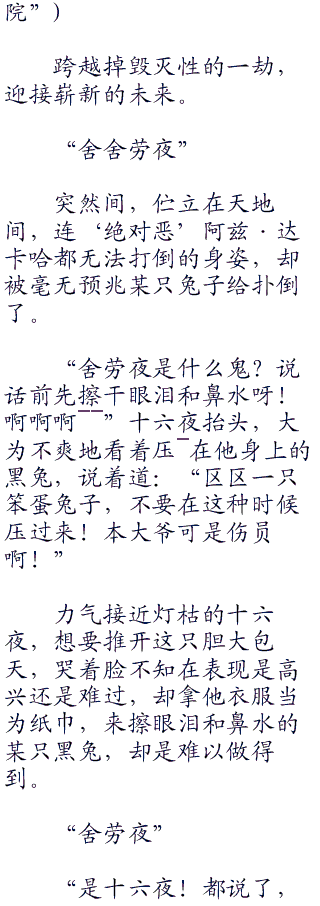 院”）
跨越掉毁灭性的一劫，
迎接崭新的未来。
“舍舍劳夜”
突然间，伫立在天地
间，连‘绝对恶’阿兹·达
卡哈都无法打倒的身姿，却
被毫无预兆某只兔子给扑倒
了。
“舍劳夜是什么鬼？说
话前先擦干眼泪和鼻水呀！
啊啊啊——”十六夜抬头，大
为不爽地看着压-在他身上的
黑兔，说着道：“区区一只
笨蛋兔子，不要在这种时候
压过来！本大爷可是伤员
啊！”
力气接近灯枯的十六
夜，想要推开这只胆大包
天，哭着脸不知在表现是高
兴还是难过，却拿他衣服当
为纸巾，来擦眼泪和鼻水的
某只黑兔，却是难以做得
到。
“舍劳夜”
“是十六夜！都说了，